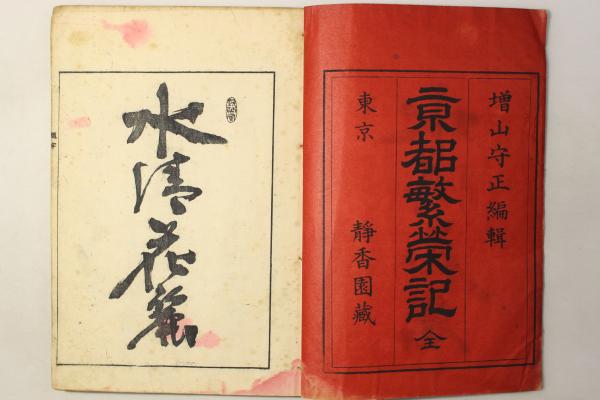 增山守正編輯
京都繁榮記 全
東京 靜香園藏
水清花麗